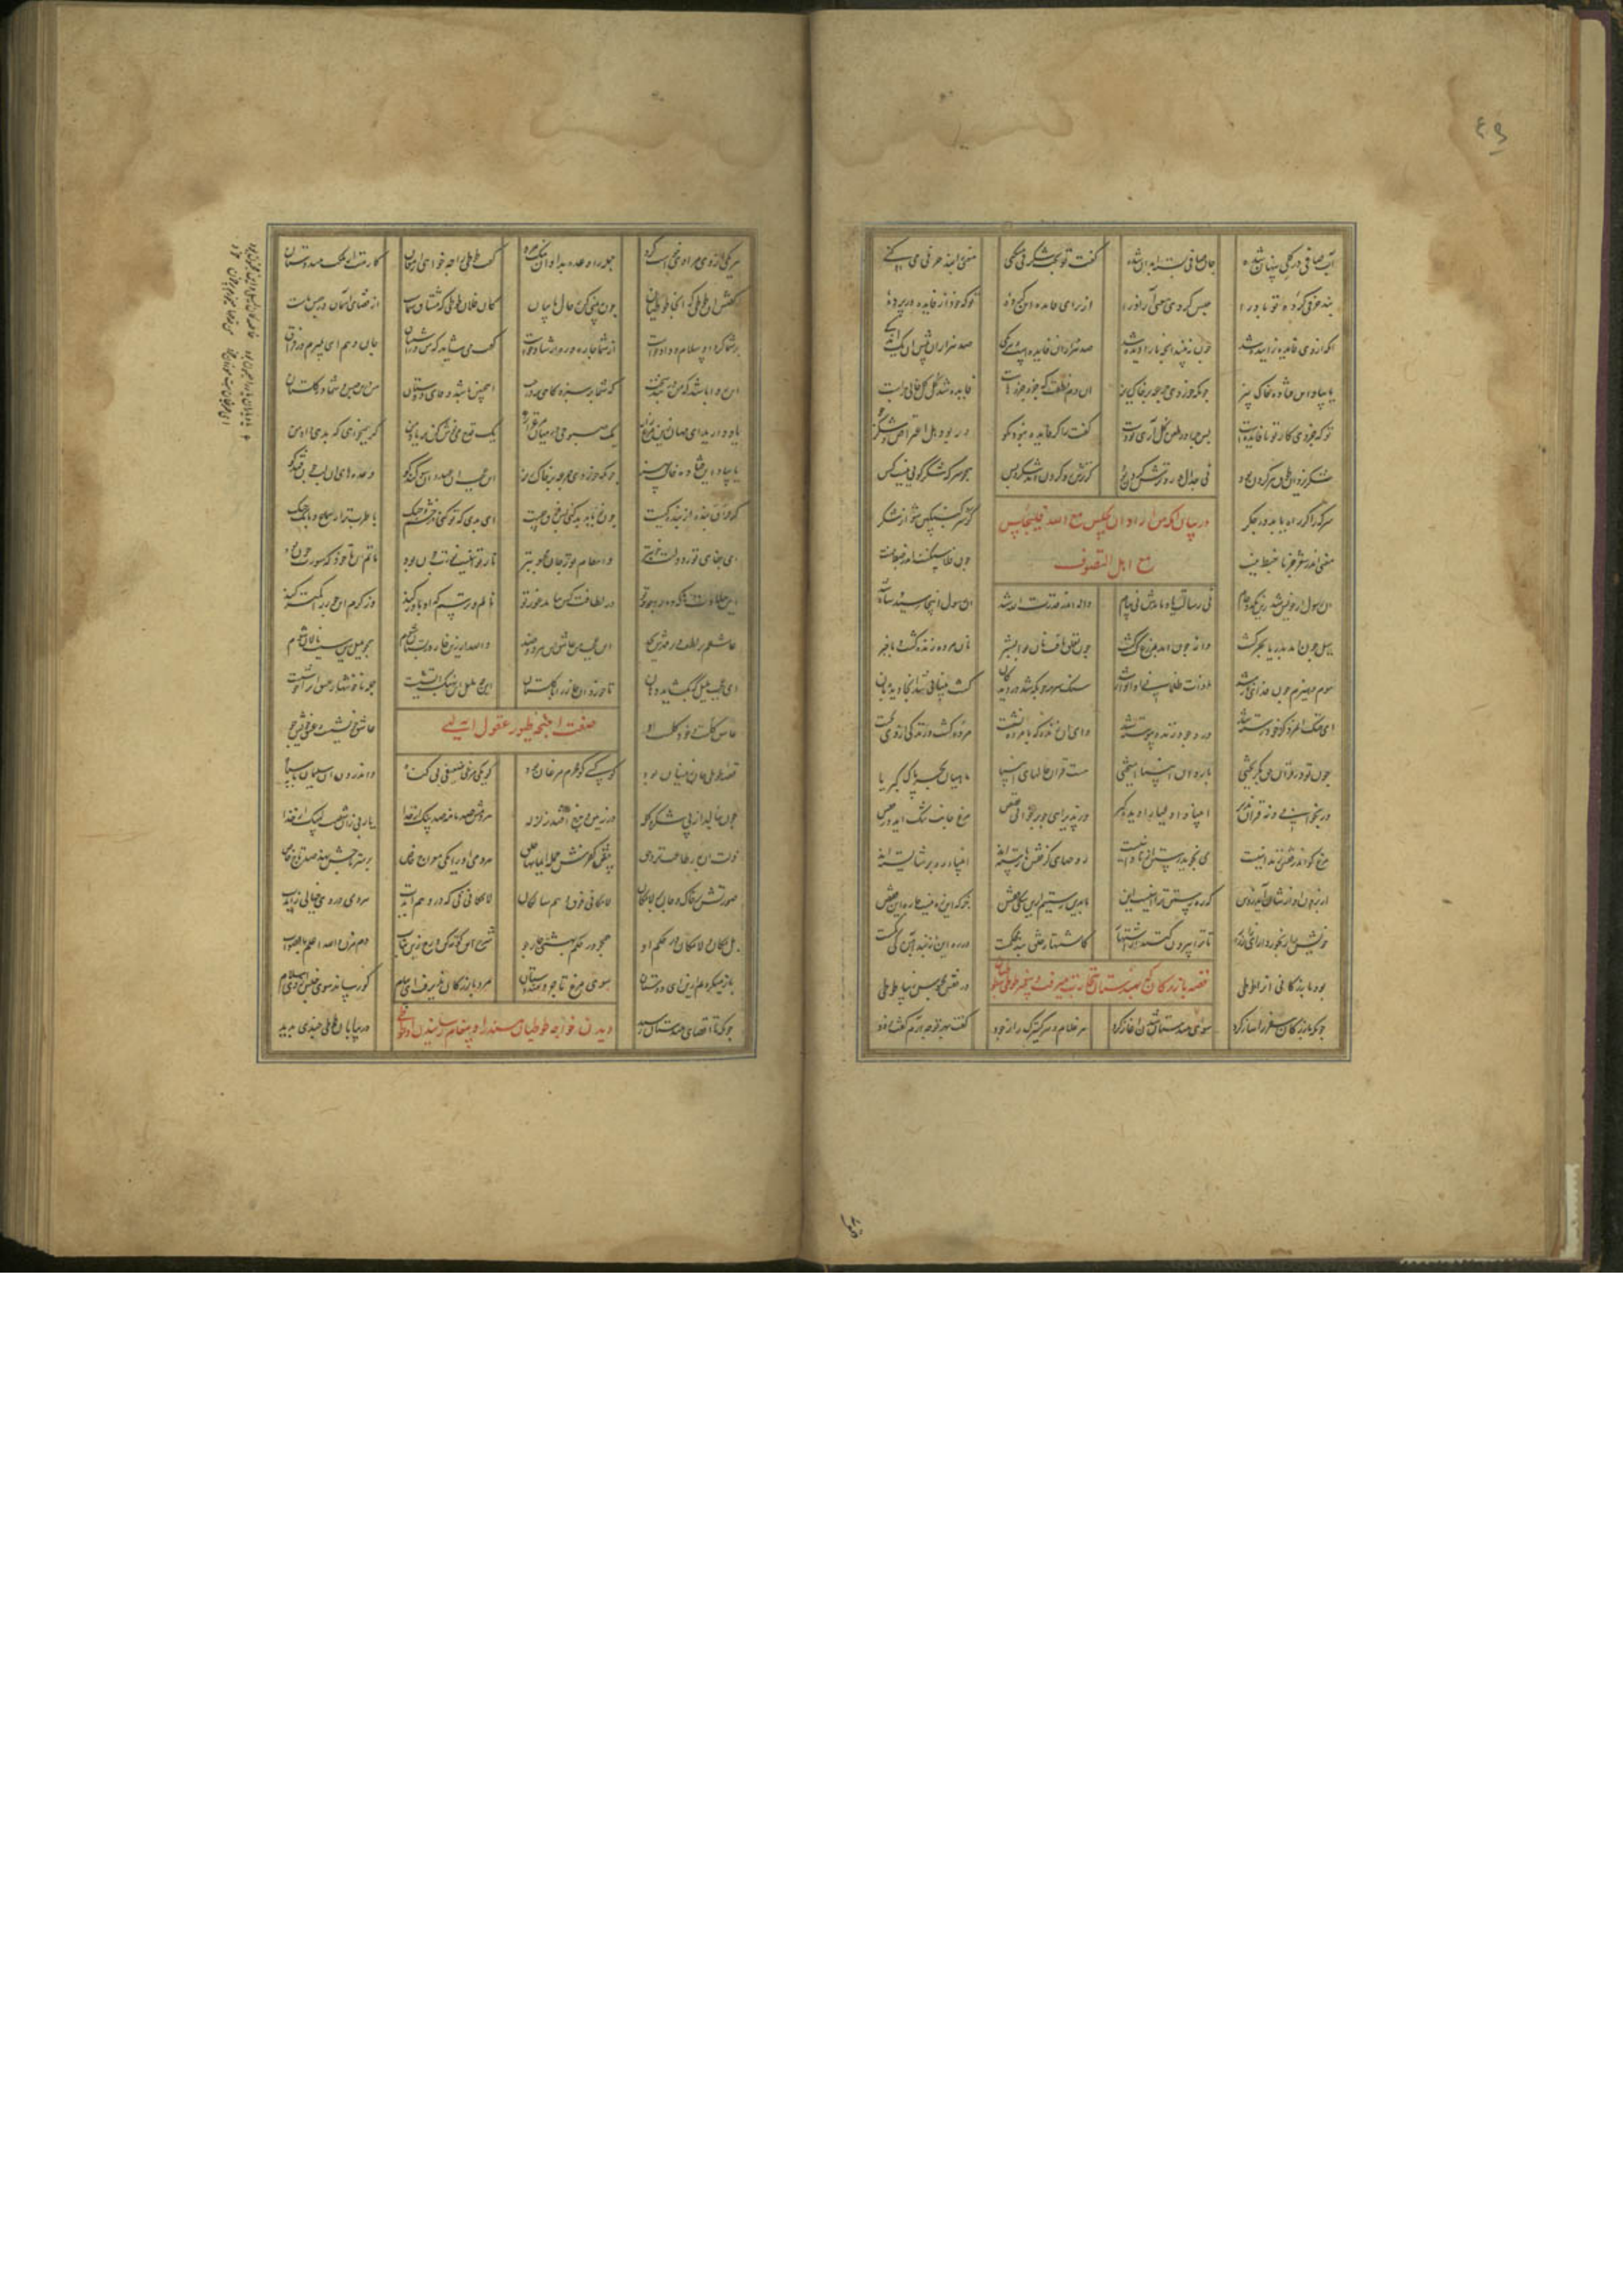 ۴۹
آب صافی در گلی پنهان شده جان صافی بسته ابدان شده گفت تو بحث شگرفی می کنی معنی را بند حرفی می کنی
بند حرفی کرده تو باد را حبس کردی معنی آزاد را از برای فایده این کرده تو که خود از فایده در پرده
آنکه از وی فایده زاییده شد چون نبیند آنچه ما را دیده شد صد هزاران فایده است و هر یکی صد هزاران پیش آن یک اندکی
یا بیاد این فتاده خاک بیز چونکه خوردی جرعه بر خاک ریز آن دم نطقت که جزو جزوهاست فایده شد کل کل خالی چراست
تو که جزوی کار تو با فایده است پس چرا در طعن کل آری تو دست گفت را گر فایده نبود مگو ور بود هل اعتراض و شکر جو
شکر یزدان طوق هر گردن بود نی جدال و رو ترش کردن بود گر ترش رو کردن آمد شکر و بس همچو سرکه شکر گویی نیست کس
سرکه را گر راه باید در جگر گو سرکنگبین شو از شکر
در بیان آنکه من اراد ان یجلس مع الله فلیجلس
معنی اندر شعر جز با خبط نیست چون فلاسنگست اندر ضبط نیست
مع اهل التصوف
آن رسول از خود بشد زین یک دو جام نی رسالت یاد ماندش نی پیام واله اندر قدرت الله شد آن رسول اینجا رسید و شاه شد
سیل چون آمد بدریا بحر گشت دانه چون آمد بمزرع گشت کشت چون تعلق یافت نان با بوالبشر نان مرده زنده گشت و با خبر
موم و هیزم چون فدای نار شد ذات ظلمانی او انوار شد سنگ سرمه چونکه شد در دیدگان گشت بینایی شد آنجا دیدبان
ای خنک آن مرد کز خود رسته شد در وجود زنده پیوسته شد وای آن زنده که با مرده نشست مرده گشت و زندگی از وی بجست
چون تو در قرآن حق بگریختی با روان انبیا آمیختی هست قرآن حالهای انبیا ماهیان بحر پاک کبریا
ور بخوانی و نه قرآن پذیر انبیا و اولیا را دیده گیر ور پذیرایی چو برخوانی قصص مرغ جانت تنگ آید در قفص
مرغ کو اندر قفس زندانیست می نجوید رستن از نادانیست روحهای کز قفسها رسته اند انبیاء رهبر شایسته اند
از برون آوازشان آید ز دین که ره رستن ترا اینست این ما بدین رستیم زین تنگین قفس جز که این ره نیست چاره این قفس
خویش را رنجور سازی زار زار تا ترا بیرون کنند از اشتهار کاشتهار خلق بند محکمست در ره این از بند آهن کی کمست
بود بازرگانی او را طوطی در قفس محبوس زیبا طوطی
قصه بازرگان که بهندستان بتجارت میرفت و پیغام طوطی محبوس
چونکه بازرگان سفر را ساز کرد سوی هندستان شدن آغاز کرد هر غلام و هر کنیزک را ز جود گفت بهر تو چه آرم گوی زود
هر یکی از وی مرادی خواست کرد جمله را وعده بداد آن نیک مرد گفت طوطی را چه خواهی ارمغان کارمت از ملک هندوستان
گفتش آن طوطی که آنجا طوطیان چون ببینی کن ز حال ما بیان کان فلان طوطی که مشتاق شماست از قضای آسمان در حبس ماست
بر شما کرد او سلام و داد خواست از شما چاره و ره ارشاد خواست گفت می شاید که من در اشتیاق جان دهم اینجا بمیرم در فراق
این روا باشد که من در بند سخت گه شما بر سبزه گاهی بر درخت اینچنین باشد وفای دوستان من درین حبس و شما در گلستان
یاد آرید ای مهان زین مرغ زار یک صبوحی در میان مرغزار یک قدح می نوش کن بر یاد من گر همی خواهی که بدهی داد من
یا بیاد این فتاده خاک بیز چونکه خوردی جرعه بر خاک ریز ای عجب آن عهد و آن سوگند کو وعده های آن لب چون قند کو
گر فراق بنده از بد بندگیست چون تو با بد بد کنی پس فرق چیست ای بدی که تو کنی در خشم و جنگ با طرب تر از سماع و بانگ چنگ
ای جفای تو ز دولت خوبتر و انتقام تو ز جان محبوبتر نار تو اینست نورت چون بود ماتم این تا خود که سورت چون بود
از حلاوتها که دارد جور تو وز لطافت کس نیابد غور تو نالم و ترسم که او باور کند وز کرم آن جور را کمتر کند
عاشقم بر لطف و بر قهرش بجد ای عجب من عاشق این هر دو ضد والله ار زین خار در بستان شوم همچو بلبل زین سبب نالان شوم
ای عجب بلبل که بگشاید دهان تا خورد او خار را با گلستان این چه بلبل این نهنگ آتشیست جمله ناخوشها ز عشق او را خوشیست
عاشق کلست و خود کلست او عاشق خویشست و عشق خویش جو
صفت اجنحه طیور عقول الهی
قصه طوطی جان زین سان بود کو کسی کو محرم مرغان بود کو یکی مرغی ضعیفی بی گناه و اندرون او سلیمان با سپاه
چون بنالد زار بی شکر و گله هر دمش صد نامه صد پیک از خدا یا ربی زو شصت لبیک از خدا
زلت او به ز طاعت نزد حق پیش کفرش جمله ایمانها خلق هر دمی او را یکی معراج خاص بر سر تاجش نهد صد تاج خاص
صورتش بر خاک و جان بر لامکان لامکانی فوق وهم سالکان لامکانی نی که در وهم آیدت هر دمی در وی خیالی زایدت
بل مکان و لامکان در حکم او همچو در حکم بهشتی چار جو شرح این کوته کن و رخ زین بتاب دم مزن والله اعلم بالصواب
باز میگردیم ازین ای دوستان سوی مرغ و تاجر و هندوستان مرد بازرگان پذیرفت این پیام کو رساند سوی جنس از وی سلام
چونکه تا اقصای هندستان رسید در بیابان طوطی چندی بدید
دیدن خواجه طوطیان هند را و پیغام رسانیدن از طوطی